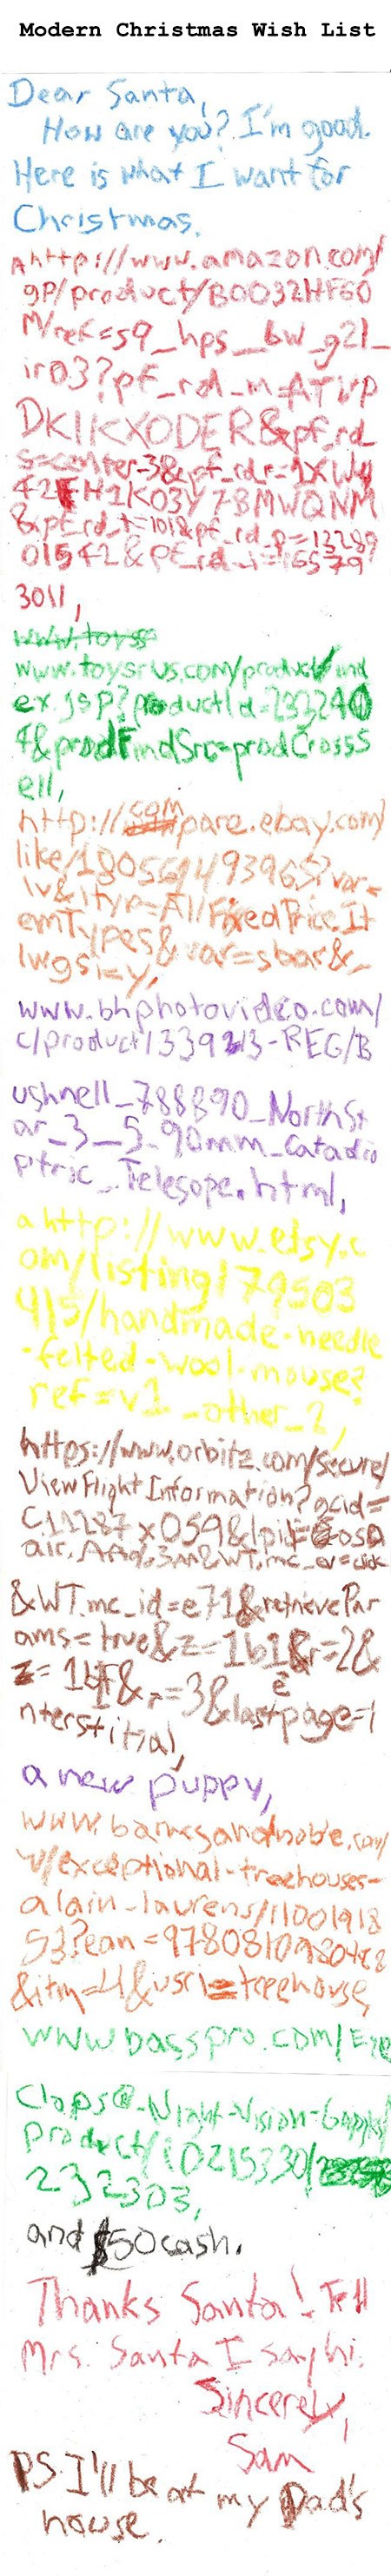 Modern Christmas Wish List
Dear Santa,
How are you? I'm good.
Here is what I want for
Christmas.
A http://www.amazon.com/
gp/product/B0032HF60
M/ref=s9_hps_bw_g21_
ir03?pf_rd_m=ATVP
DKIKX0DER&pf_rd_
s=center-3&pf_rd_r=1XW4
42FH1K03Y78MWQNM
&pf_rd_t=101&pf_rd_p=13289
01542&pf_rd_i=16579
3011,
www.toyss
www.toysrus.com/product/ind
ex.jsp?productId=2332240
4&prodFindSrc=prodCrossS
ell,
http://compare.ebay.com/
like/180561493965?var=
lv&ltyp=AllFixedPriceIt
emTypes&var=sbar&_
lwgsi=y,
www.bhphotovideo.com/
c/product/339213-REG/B
ushnell_788890_NorthSt
ar_3_5_90mm_Catadio
ptric_Telesope.html,
a http://www.etsy.c
om/listing/79503
415/handmade-needle
-felted-wool-mouse?
ref=v1_other_2,
https://www.orbitz.com/Secure/
ViewFlightInformation?gcid=
C11287x059&
&WT.mc_id=e71&retrievePar
ams=true&z=1b1&r=2&
z=1bf&r=3&lastpage=i
nterstitial,
a new puppy,
www.barnesandnoble.com/
w/exceptional-treehouses-
alain-laurens/11001918
53?ean=9780810980488
&itm=4&usri=treehouse,
www.basspro.com/Eye
Clops®-Night-Vision-
product/10215330/
232303,
and $50 cash.
Thanks Santa! Tell
Mrs. Santa I say hi.
Sincerely,
Sam
PS I'll be at my Dad's
house.